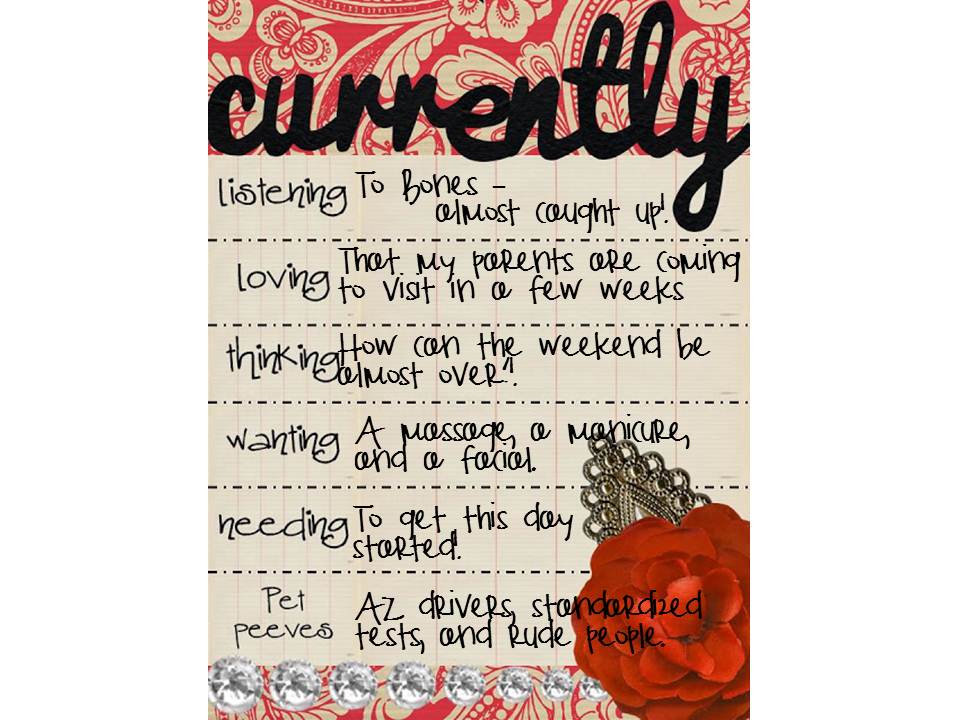 currently
listening To Bones -
almost caught up!
loving That my parents are coming
to visit in a few weeks
thinking How can the weekend be
almost over?!
wanting A massage, a manicure,
and a facial.
needing To get this day
started!
Pet
peeves
AZ drivers, standardized
tests, and rude people.